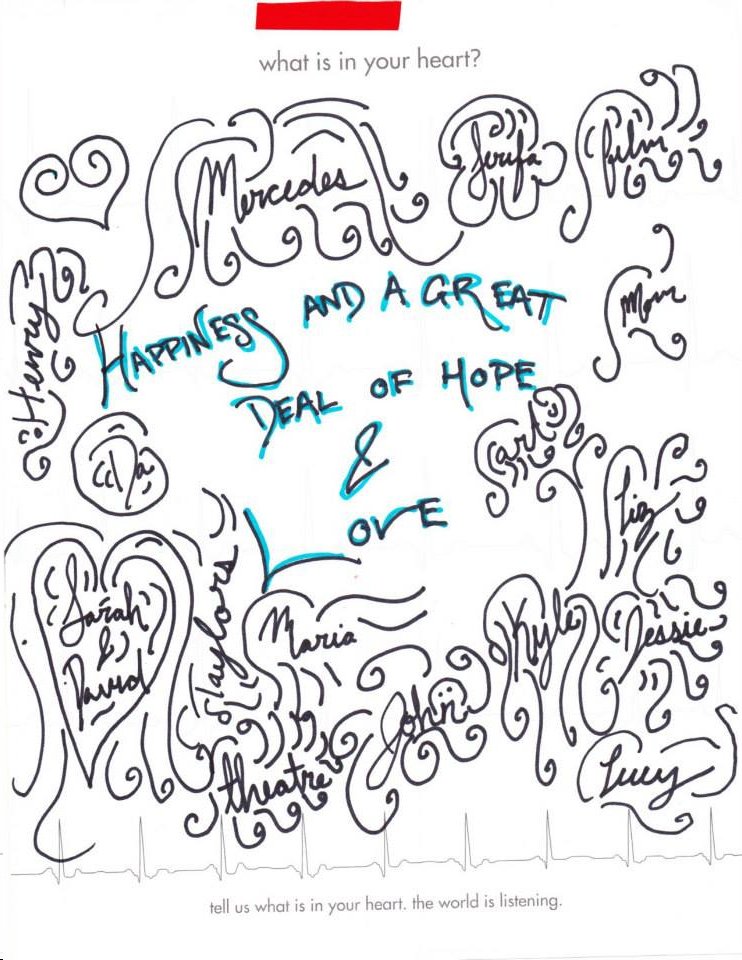 what is in your heart?
Mercedes
film
Mom
Henry
HAPPINESS AND A GREAT
DEAL OF HOPE
&
LOVE
Da
art
Liz
Sarah
&
David
Taylors
Maria
Kyle
Jessie
John
theatre
Lucy
tell us what is in your heart. the world is listening.